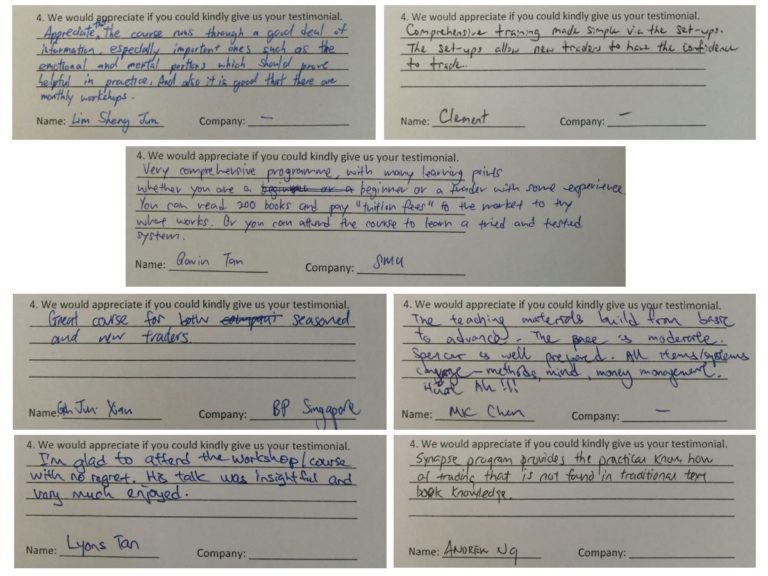 4. We would appreciate if you could kindly give us your testimonial.
Appreciate that the course runs through a good deal of
information, especially important ones such as the
emotional and mental portions which should prove
helpful in practice. And also it is good that there are
monthly workshops.
Name: Lim Sheng Jun Company: –
4. We would appreciate if you could kindly give us your testimonial.
Comprehensive training made simple via the set-ups.
The set-ups allow new traders to have the confidence
to trade.
Name: Clement Company: –
4. We would appreciate if you could kindly give us your testimonial.
Very comprehensive programme, with many learning points
whether you are a beginner or a trader with some experience
You can read 200 books and pay "tuition fees" to the market to try
what works. Or you can attend the course to learn a tried and tested
system.
Name: Gavin Tan Company: SMU
4. We would appreciate if you could kindly give us your testimonial.
Great course for both seasoned
and new traders
Name: Jun Xian Company: BP Singapore
4. We would appreciate if you could kindly give us your testimonial.
The teaching materials build from basic
to advance. The pace is moderate.
Spencer is well prepared. All items/systems
converge – methods, mind, money management.
Huat Ah!!!
Name: MK Chen Company: –
4. We would appreciate if you could kindly give us your testimonial.
I'm glad to attend the workshop/course
with no regret. His talk was insightful and
very much enjoyed.
Name: Lyons Tan Company:
4. We would appreciate if you could kindly give us your testimonial.
Synapse program provides the practical know how
of trading that is not found in traditional text
book knowledge.
Name: ANDREW NG Company: